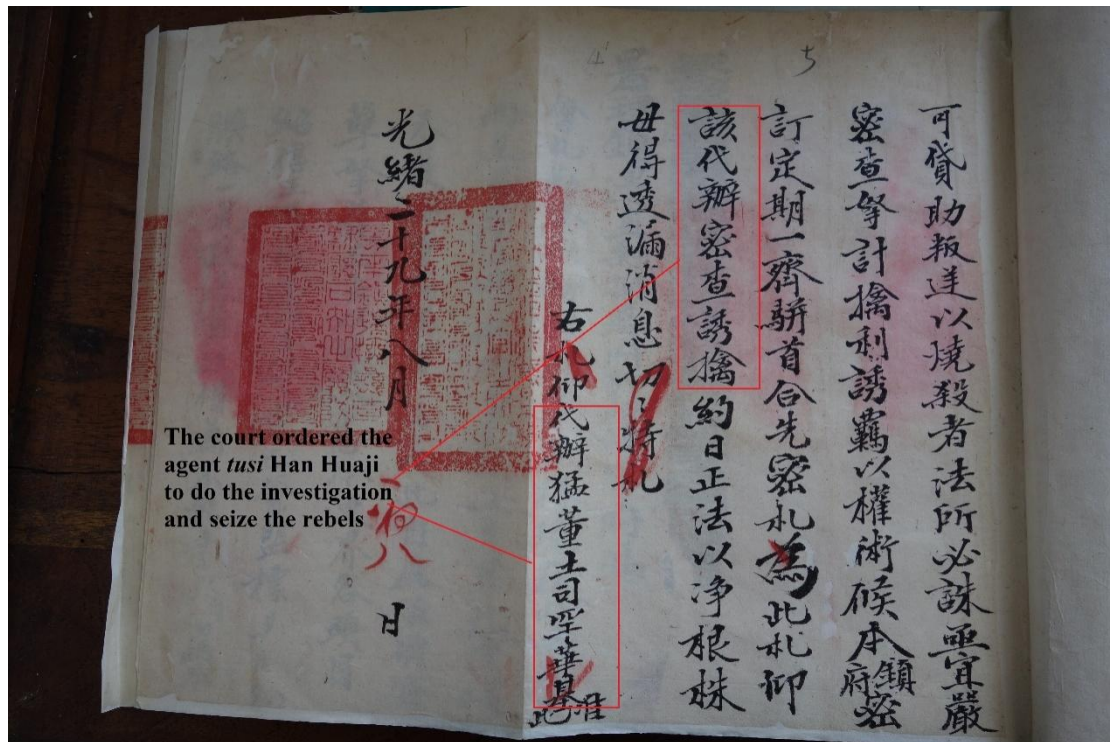 5
4
可貸助叛逆以燒殺者法所必誅亟宜嚴
密查拏計擒利誘羈以權術候本鎮府密
訂定期一齊駢首合先密札為此札仰
該代辦密查誘擒約日正法以净根株
毋得透漏消息切々特札
右札仰代辦猛董土司罕華基准此
光緒二十九年八月初八日
The court ordered the
agent tusi Han Huaji
to do the investigation
and seize the rebels